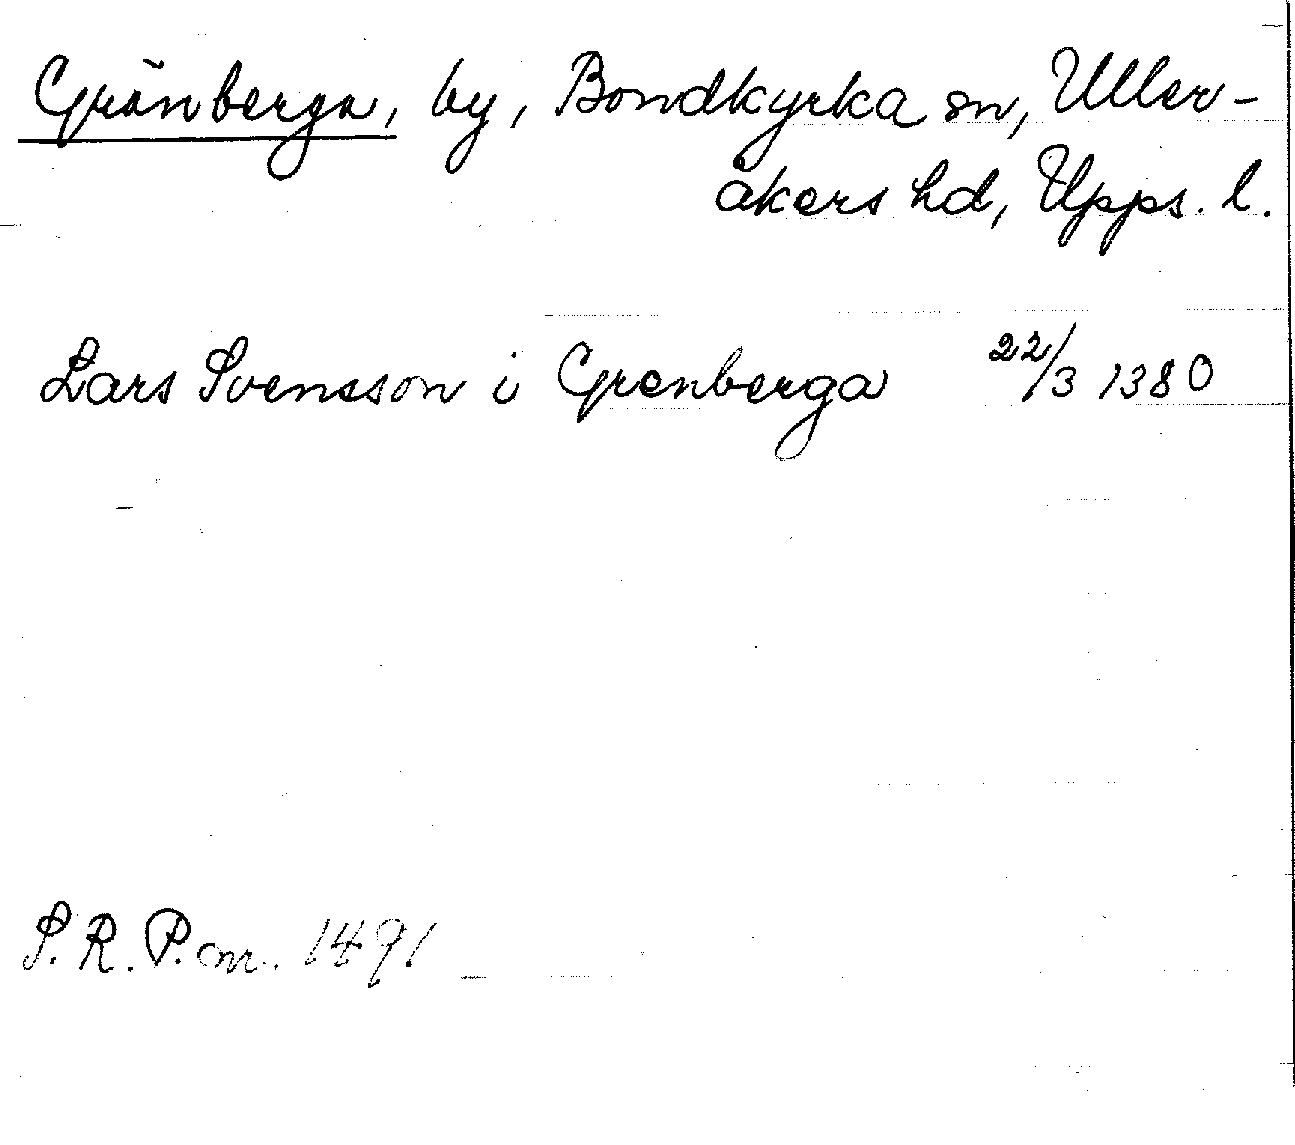 Gränberga, by, Bondkyrka sn, Uller-
åkers hd, Upps. l.
Lars Svensson i Grenberga 22/3 1380
S. R. P. nr. 1491